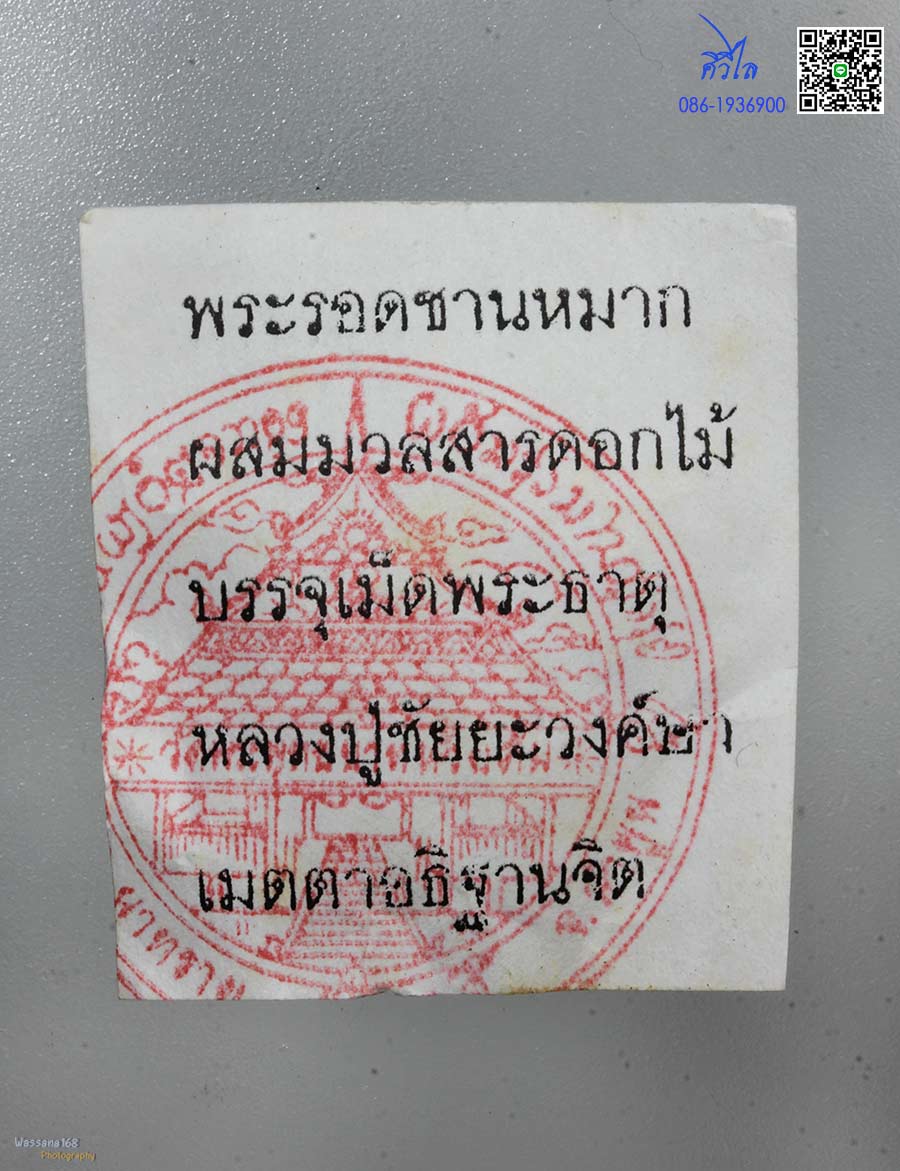 ศิวิไล
086-1936900
พระรอดชานหมาก
ผสมมวลสารดอกไม้
บรรจุเม็ดพระธาตุ
หลวงปู่ชัยยะวงค์ษา
เมตตาอธิฐานจิต
Wassana168
Photography